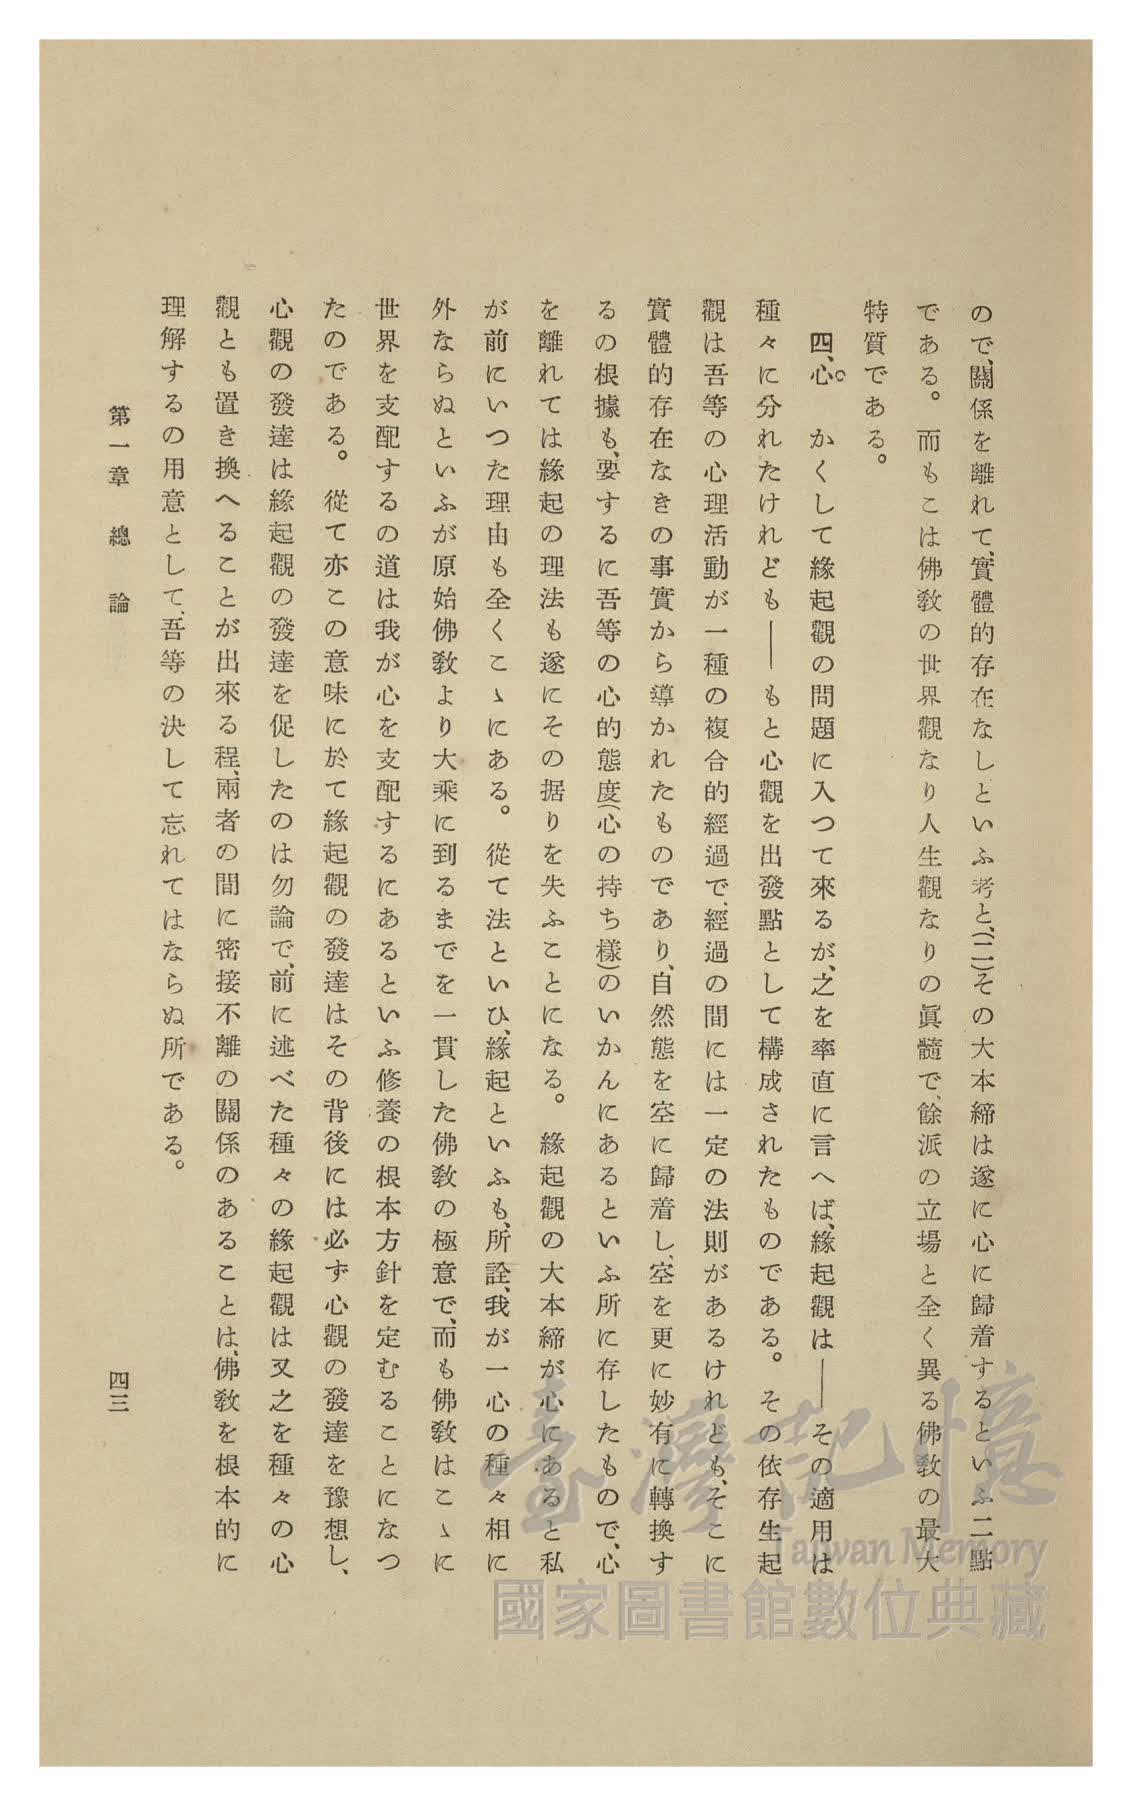 ので、關係を離れて、實體的存在なしといふ考と、(二)その大本締は遂に心に歸着するといふ二點
である。而もこは佛敎の世界觀なり人生觀なりの眞髓で、餘派の立場と全く異る佛敎の最大
特質である。
四、心。かくして緣起觀の問題に入つて來るが、之を率直に言へば、緣起觀は――その適用は
種々に分れたけれども――もと心觀を出發點として構成されたものである。その依存生起
觀は吾等の心理活動が一種の複合的經過で、經過の間には一定の法則があるけれども、そこに
實體的存在なきの事實から導かれたものであり、自然態を空に歸着し、空を更に妙有に轉換す
るの根據も、要するに吾等の心的態度(心の持ち樣)のいかんにあるといふ所に存したもので、心
を離れては緣起の理法も遂にその据りを失ふことになる。緣起觀の大本締が心にあると私
が前にいつた理由も全くこゝにある。從て法といひ、緣起といふも、所詮、我が一心の種々相に
外ならぬといふが原始佛敎より大乘に到るまでを一貫した佛敎の極意で、而も佛敎はこゝに
世界を支配するの道は我が心を支配するにあるといふ修養の根本方針を定むることになつ
たのである。從て亦この意味に於て緣起觀の發達はその背後には必ず心觀の發達を豫想し、
心觀の發達は緣起觀の發達を促したのは勿論で、前に述べた種々の緣起觀は又之を種々の心
觀とも置き換へることが出來る程、兩者の間に密接不離の關係のあることは、佛敎を根本的に
理解するの用意として、吾等の決して忘れてはならぬ所である。
第一章 總論
四三
臺灣記憶
Taiwan Memory
國家圖書館數位典藏